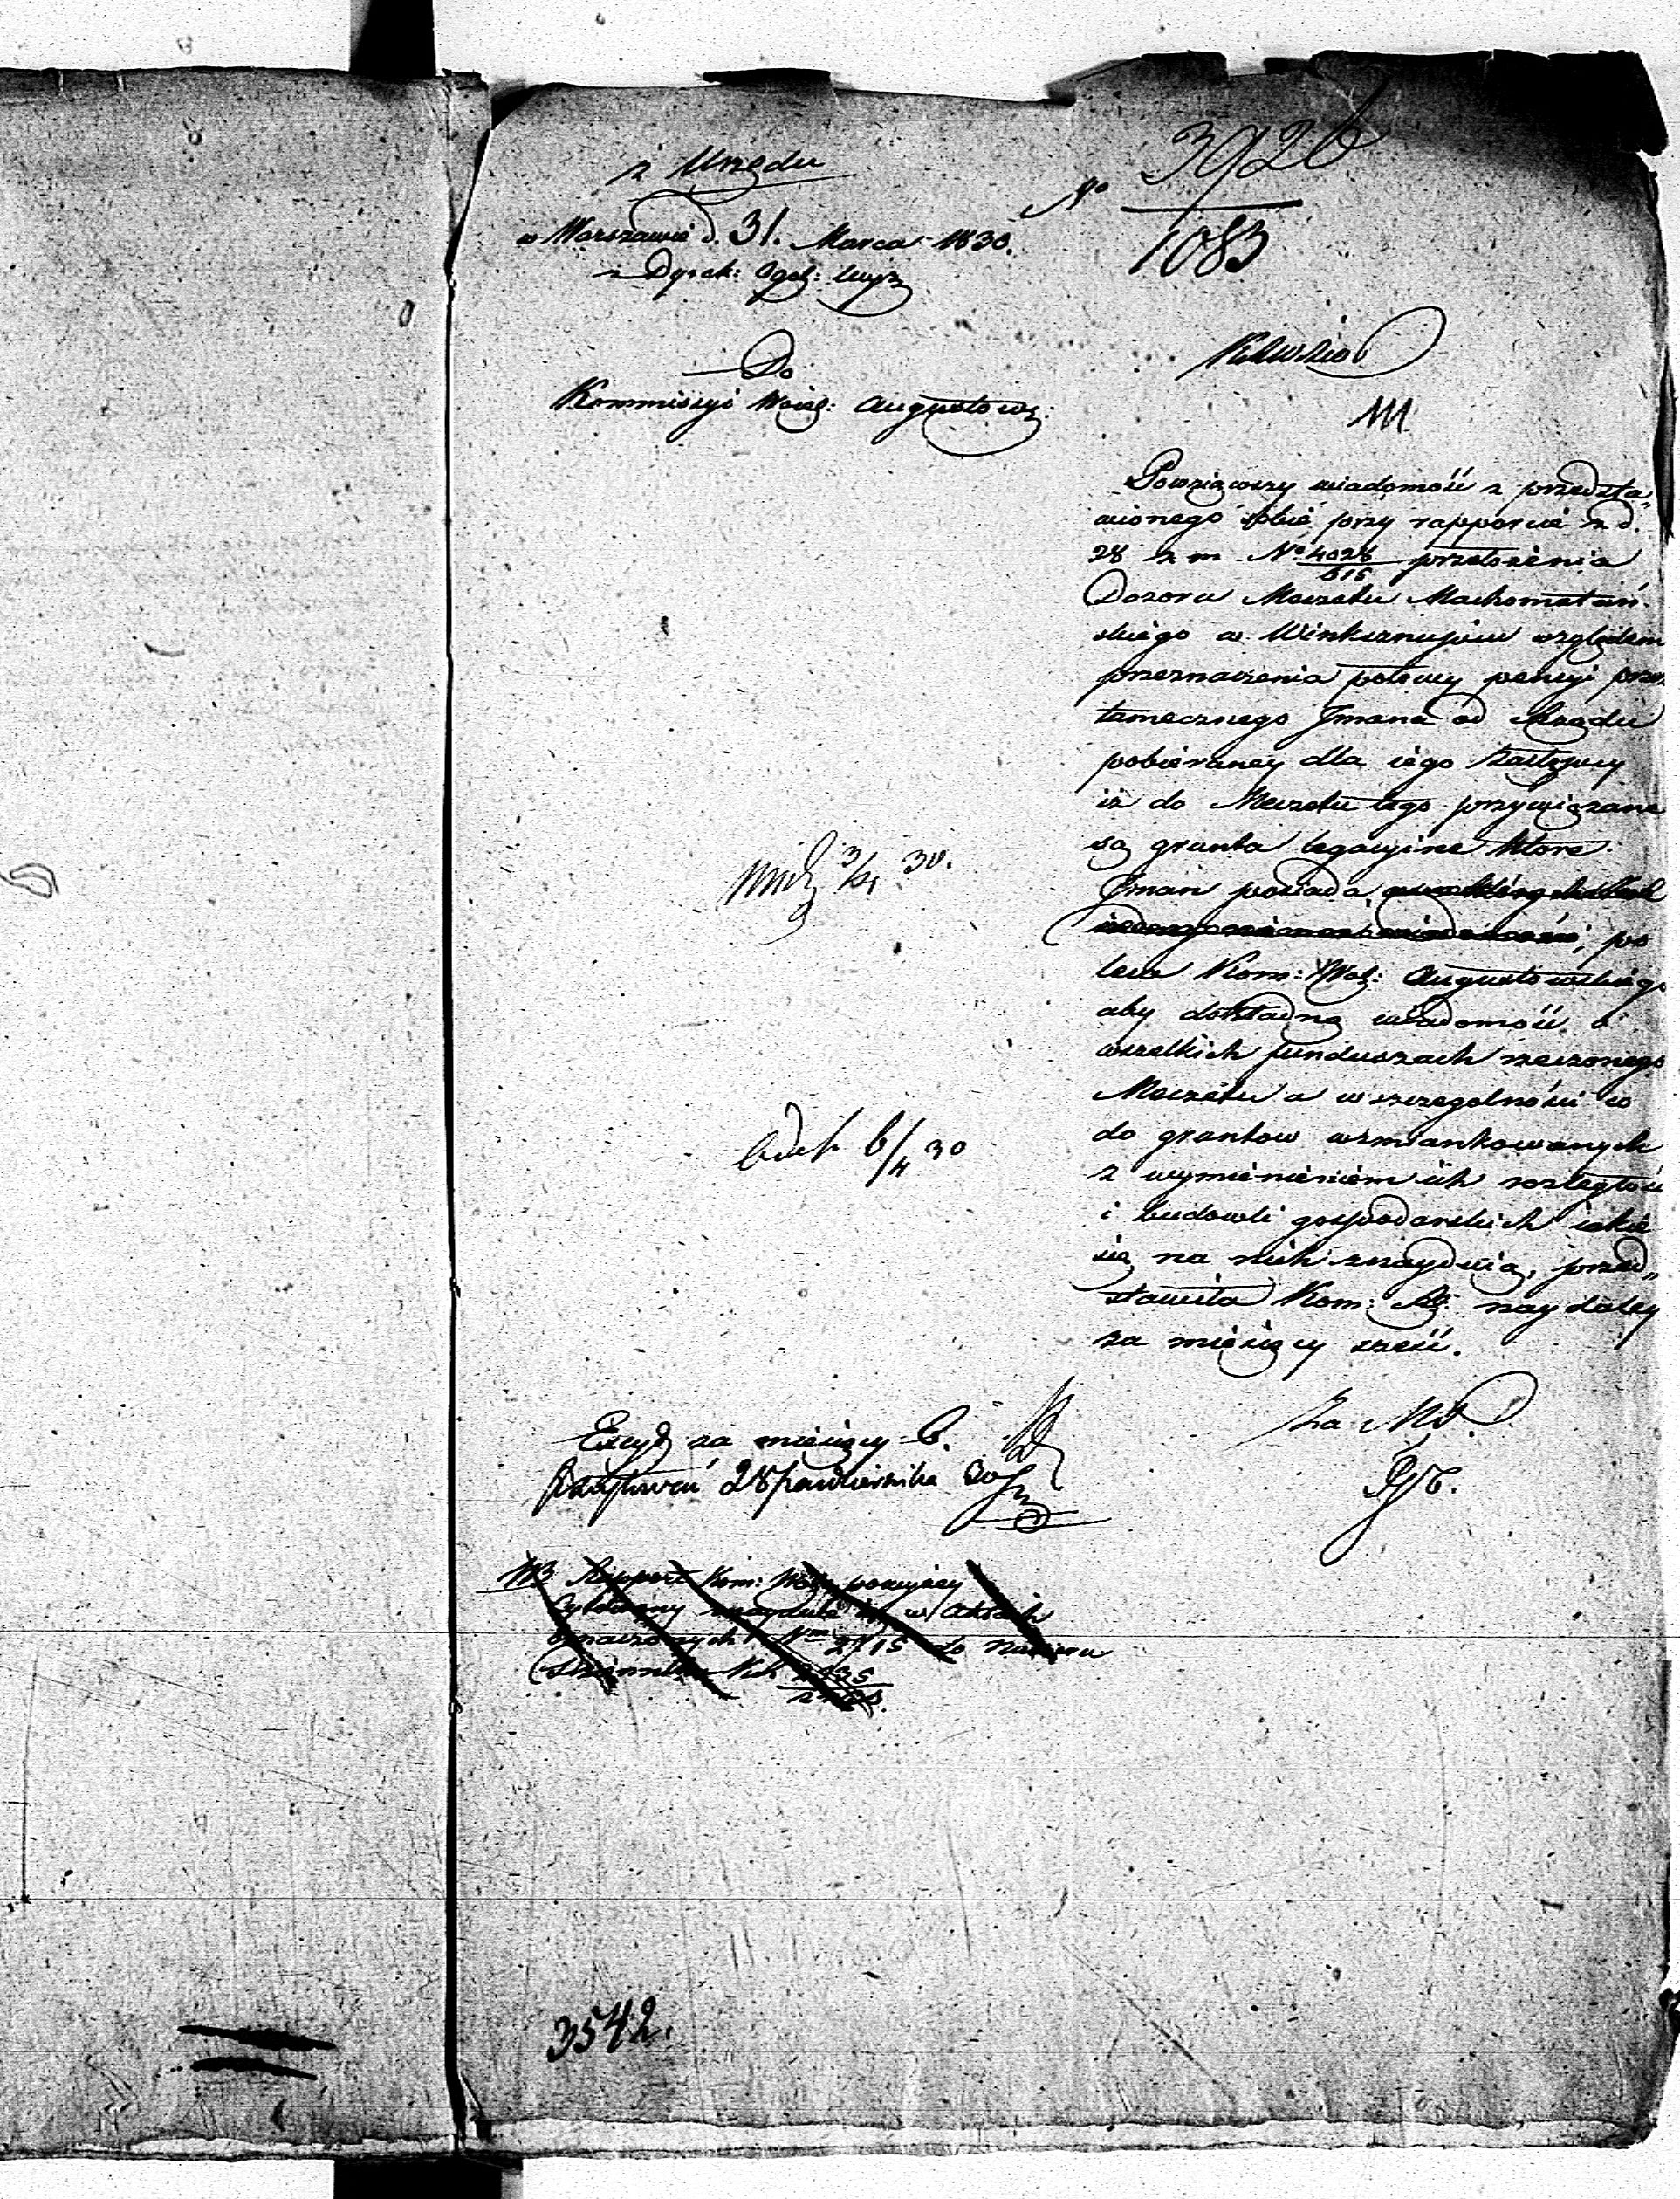 z Urzędu
w Warszawie d. 31. Marca 1830.
z Dyrek: Ogól: Wyz
Do
Kommissyi Woiew: Augustows:
No 3926
1083
Powziąwszy wiadomość z przedsta„
wionego sobie przy rapporcie z d.
28 z. m. No 4028/615 przełożenia
Dozoru Meczetu Machometań„
skiego w Winksznupiu względem
przeznaczenia połowy pensyi przez
tamecznego Jmana od Rządu
pobieraney dla iego Zastępcy
iż do Meczetu tego przywiązane
są grunta legacyine które
Jman posiada,
po
leca Kom: Wdz: Augustowskiego
aby dokładną wiadomość o
wszelkich funduszach rzeczonego
Meczetu a w szczególności co
do gruntow wzmiankowanych
z wymienieniem ich rozległości
i budowli gospodarskich iakie
się na nich znayduią, przed„
stawiła Kom: Rz: naydaley
za miesięcy sześć.
Za M. P.
3/4 30.
6/4 30
Excyt za miesięcy 6.
28 Pazdziernika 30
NB Rapport Kom: Woj: powyżey
Cytowany znayduie się w Aktach
Oznaczonych Nm 2715 do Numeru
Dziennika
3542.